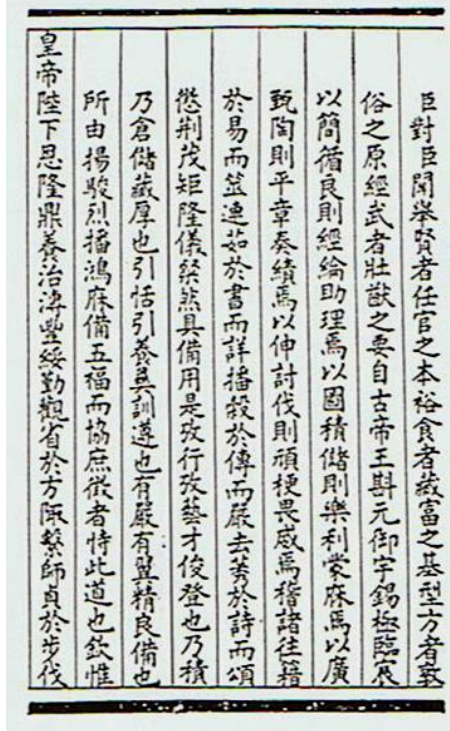 臣對臣聞舉賢者任官之本裕食者藏富之基型方者敦
俗之原經武者壯猷之要自古帝王斟元御宇錫極臨宸
以簡循良則經綸助理焉以圖積儲則樂利蒙庥焉以廣
甄陶則平章奏績焉以伸討伐則頑梗畏威焉稽諸往籍
於易而筮連茹於書而詳播穀於傳而嚴去莠於詩而頌
懲荆茂矩隆儀粲然具備用是攷行攷藝才俊登也乃積
乃倉儲藏厚也引恬引養彝訓遵也有嚴有翼精良備也
所由揚駿烈播鴻庥備五福而協庶徵者恃此道也欽惟
皇帝陛下恩隆鼎養治溥豐綏勤觀省於方陬繫師貞於步伐